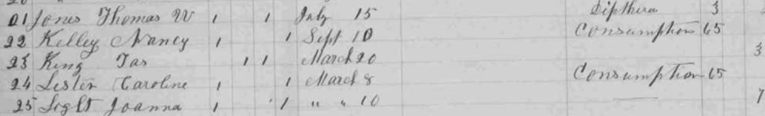 21 Jones Thomas W 1 1 July 15 Dipthera 3
22 Kelley Nancy 1 1 Sept 10 Consumption 65
23 King Jas 1 1 March 20 3
24 Lester Caroline 1 1 March 8 Consumption 65
25 Light Joanna 1 1 " " 10 — 7